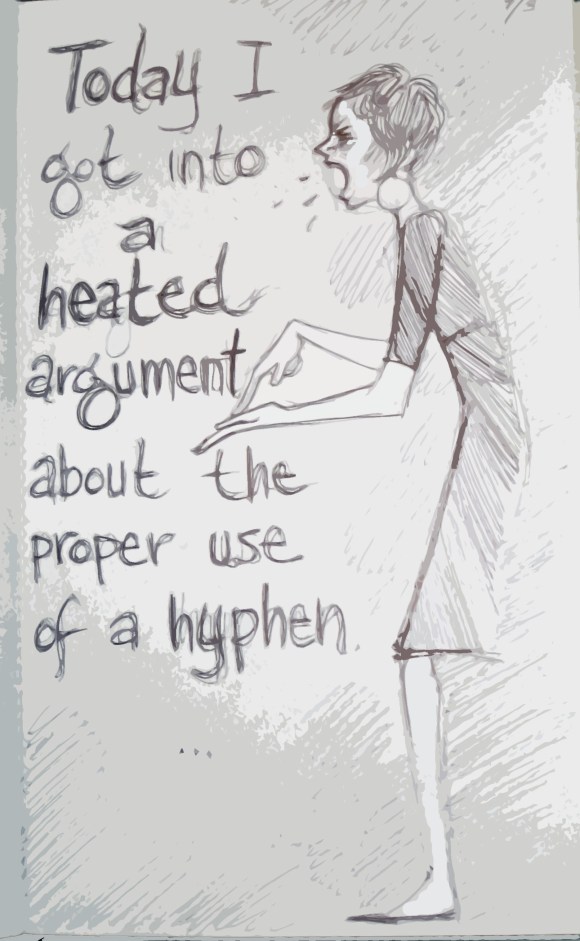 Today I
got into
a
heated
argument
about the
proper use
of a hyphen.